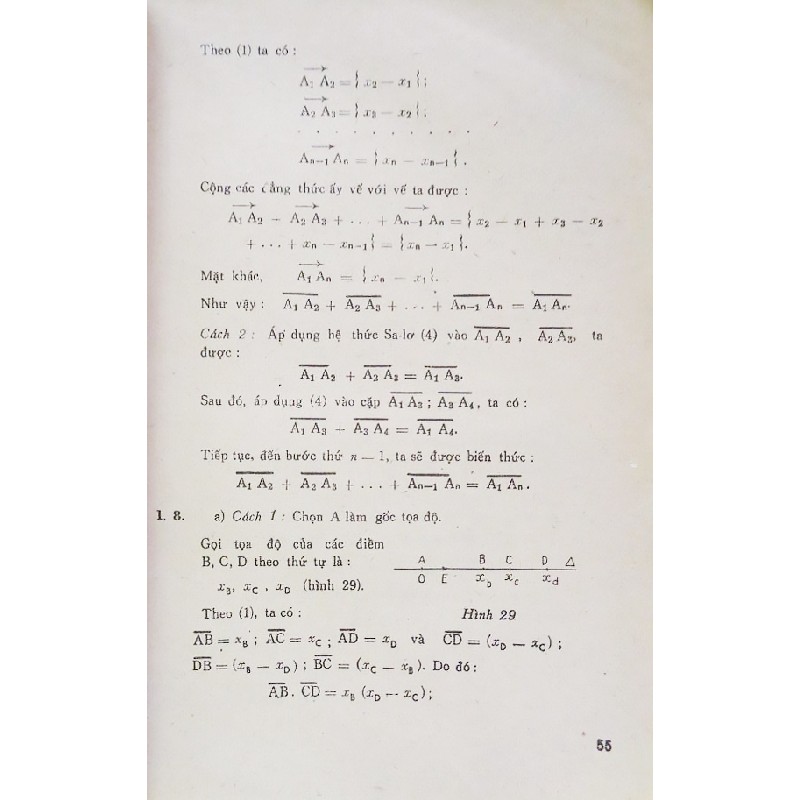 Theo (1) ta có :
A₁ A₂ = { x₂ − x₁ } ;
A₂ A₃ = { x₃ − x₂ } ;
. . . . . . . . . .
Aₙ₋₁ Aₙ = { xₙ − xₙ₋₁ } .
Cộng các đẳng thức ấy vế với vế ta được :
A₁ A₂ − A₂ A₃ + . . . + Aₙ₋₁ Aₙ = { x₂ − x₁ + x₃ − x₂
+ . . . + xₙ − xₙ₋₁ } = { xₙ − x₁ }.
Mặt khác, A₁ Aₙ = { xₙ − x₁ }.
Như vậy : A₁ A₂ + A₂ A₃ + . . . + Aₙ₋₁ Aₙ = A₁ Aₙ.
Cách 2 : Áp dụng hệ thức Sa-lơ (4) vào A₁ A₂ , A₂ A₃, ta
được :
A₁ A₂ + A₂ A₃ = A₁ A₃.
Sau đó, áp dụng (4) vào cặp A₁ A₃ ; A₃ A₄, ta có :
A₁ A₃ − A₃ A₄ = A₁ A₄.
Tiếp tục, đến bước thứ n − 1, ta sẽ được biến thức :
A₁ A₂ + A₂ A₃ + . . . + Aₙ₋₁ Aₙ = A₁ Aₙ.
1. 8. a) Cách 1 : Chọn A làm gốc tọa độ.
Gọi tọa độ của các điểm
B, C, D theo thứ tự là :
x_B, x_C , x_D (hình 29).
A B C D Δ
O E x_b x_c x_d
Hình 29
Theo (1), ta có :
AB = x_B ; AC = x_C ; AD = x_D và CD = (x_D − x_C) ;
DB = (x_B − x_D) ; BC = (x_C − x_B). Do đó :
AB. CD = x_B (x_D − x_C) ;
55